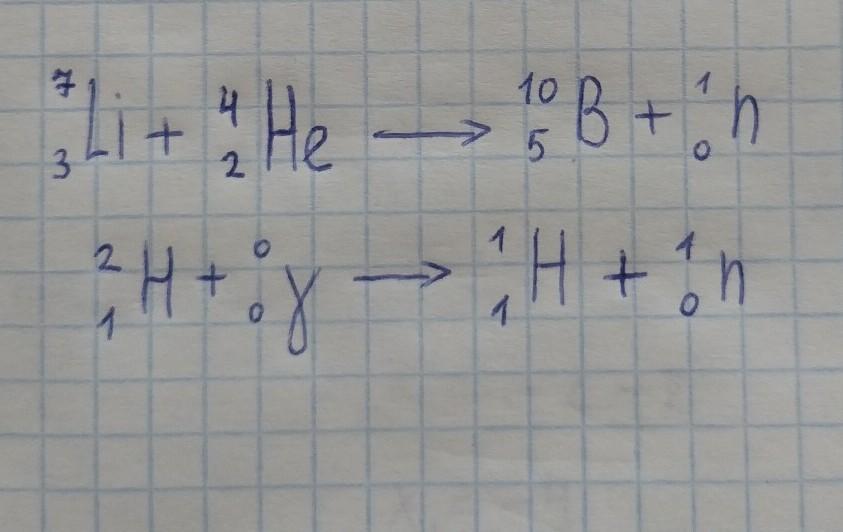 ⁷₃Li + ⁴₂He ⟶ ¹⁰₅B + ¹₀n
²₁H + ⁰₀γ ⟶ ¹₁H + ¹₀n